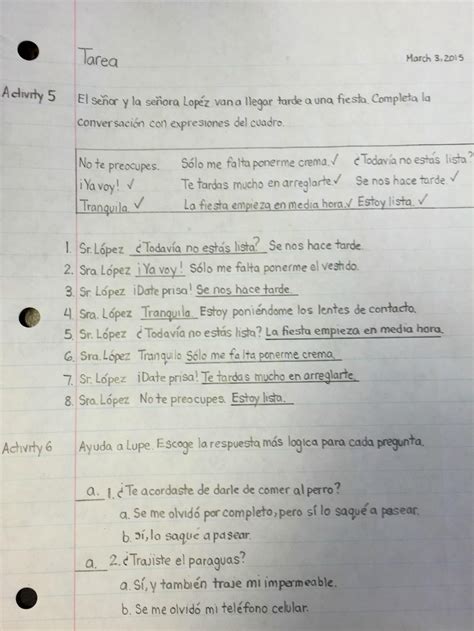 Tarea
March 3, 2015
Activity 5
El señor y la señora Lopéz van a llegar tarde a una fiesta. Completa la
conversación con expresiones del cuadro.
No te preocupes. Sólo me falta ponerme crema.✓ ¿Todavía no estás lista?
¡Ya voy! ✓ Te tardas mucho en arreglarte.✓ Se nos hace tarde.✓
Tranquila ✓ La fiesta empieza en media hora.✓ Estoy lista.✓
1. Sr. López ¿Todavía no estás lista? Se nos hace tarde.
2. Sra. López ¡Ya voy! Sólo me falta ponerme el vestido.
3. Sr. López ¡Date prisa! Se nos hace tarde.
4. Sra. López Tranquila. Estoy poniéndome los lentes de contacto.
5. Sr. López ¿Todavía no estás lista? La fiesta empieza en media hora.
6. Sra. López Tranquilo Sólo me falta ponerme crema.
7. Sr. López ¡Date prisa! Te tardas mucho en arreglarte.
8. Sra. López No te preocupes. Estoy lista.
Activity 6
Ayuda a Lupe. Escoge la respuesta más logica para cada pregunta.
a. 1. ¿Te acordaste de darle de comer al perro?
a. Se me olvidó por completo, pero sí lo saqué a pasear.
b. Sí, lo saqué a pasear.
a. 2. ¿Trajiste el paraguas?
a. Sí, y también traje mi impermeable.
b. Se me olvidó mi teléfono celular.